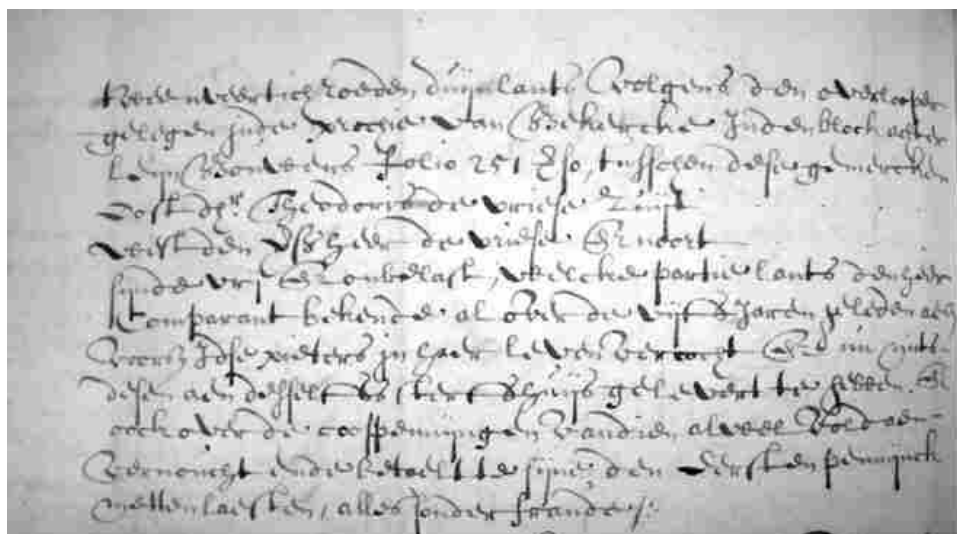 tweenveertich roeden duijnlants volgens den overlooper
gelegen inde prochie van Biekercke Inden block achter
Leijn Bouwens folio 251 vso, tusschen dese gemercken
Oost dhr. Theodoris de vriese Zuijt
west den Hheer de vriese Er noort
sijnde vrij En onbelast, welcke partie lants den heer
Comparant bekende al over de vijff Jaren geleden aen
voorsz Idse pieters in haer leven vercocht En nu mits
desen aen desselffs sterffhuijs gelevert te hebben. En
oock over de cooppenningen vandien al wel voldaen
vernoucht ende betaelt te sijne, den eersten penninck
metten laesten, alles sonder fraude